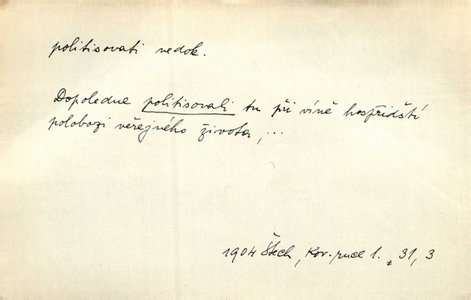 politisovati nedok.
Dopoledne politisovali tu při víně hospřidští
polobozi veřejného života, ...
1904 Štech, Kov. pudl 1. , 31, 3